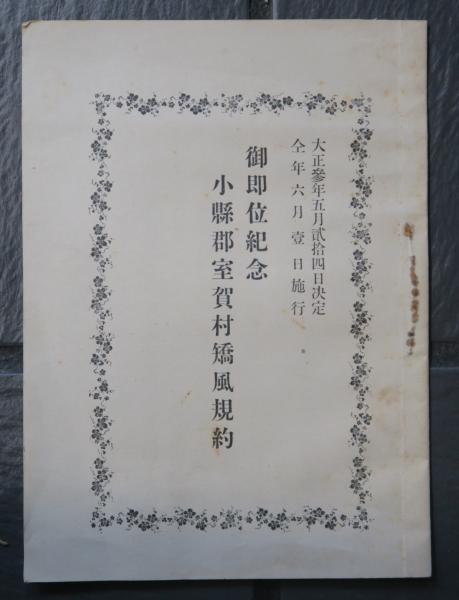 大正參年五月貳拾四日決定
仝年六月壹日施行
御即位紀念
小縣郡室賀村矯風規約